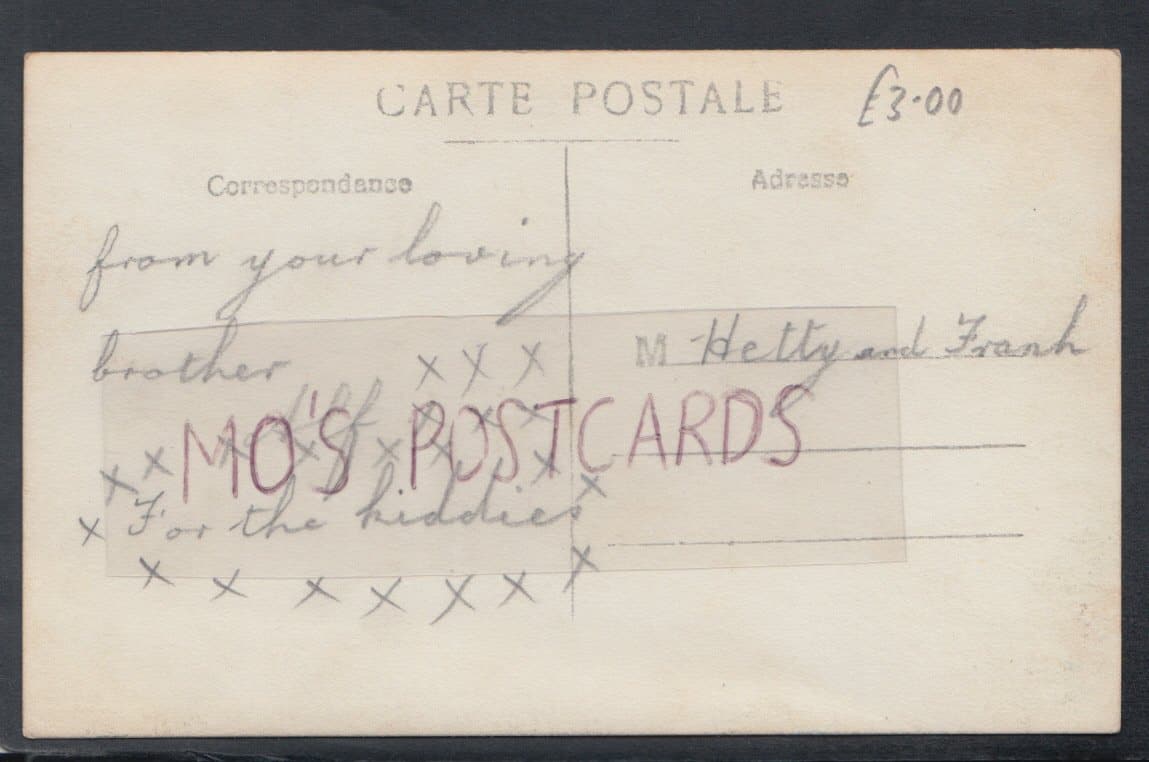 CARTE POSTALE £3.00
Correspondance
Adresse
from your loving
brother x x x
Alf x x x
x x x x x x x x
x For the kiddies
x x x x x x x
M Hetty and Frank
MO'S POSTCARDS